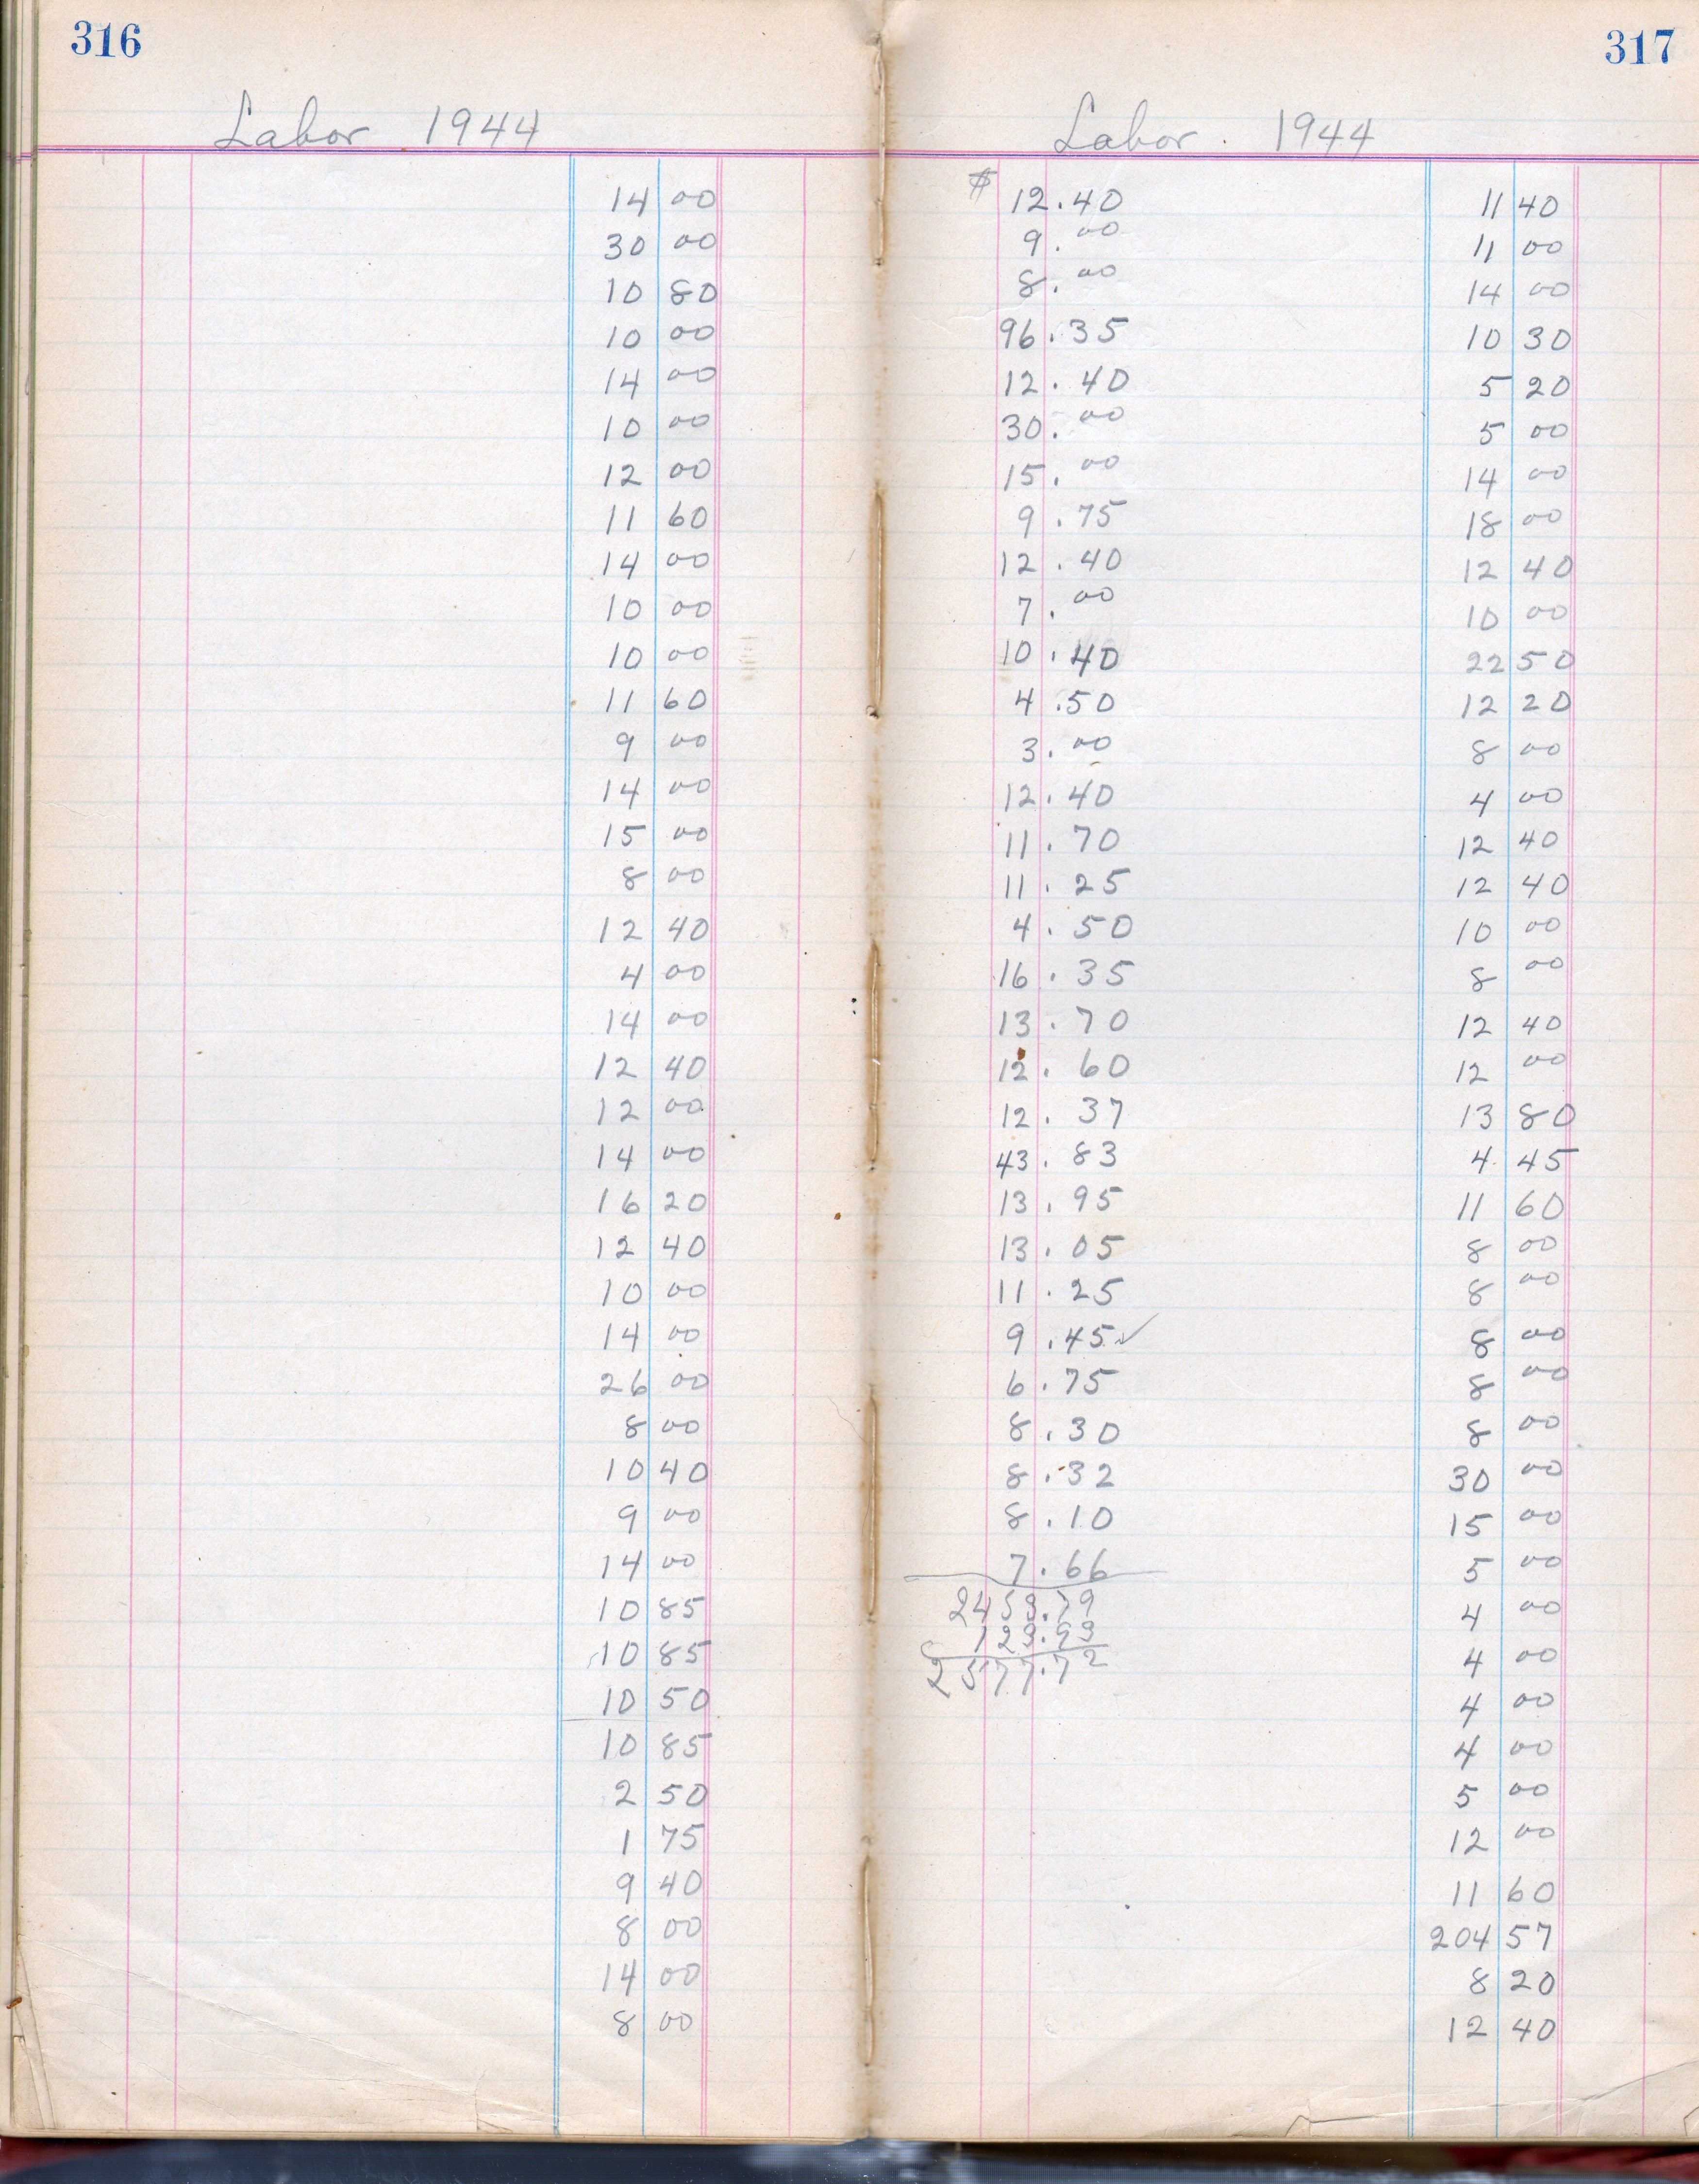 316
Labor 1944
14 00
30 00
10 80
10 00
14 00
10 00
12 00
11 60
14 00
10 00
10 00
11 60
9 00
14 00
15 00
8 00
12 40
4 00
14 00
12 40
12 00
14 00
16 20
12 40
10 00
14 00
26 00
8 00
10 40
9 00
14 00
10 85
10 85
10 50
10 85
2 50
1 75
9 40
8 00
14 00
8 00
317
Labor. 1944
$ 12.40
9.00
8.00
96.35
12.40
30.00
15.00
9.75
12.40
7.00
10.40
4.50
3.00
12.40
11.70
11.25
4.50
16.35
13.70
12.60
12.37
43.83
13.95
13.05
11.25
9.45 ✓
6.75
8.30
8.32
8.10
7.66
2453.79
123.93
2577.72
11 40
11 00
14 00
10 30
5 20
5 00
14 00
18 00
12 40
10 00
22 50
12 20
8 00
4 00
12 40
12 40
10 00
8 00
12 40
12 00
13 80
4 45
11 60
8 00
8 00
8 00
8 00
8 00
30 00
15 00
5 00
4 00
4 00
4 00
4 00
5 00
12 00
11 60
204 57
8 20
12 40